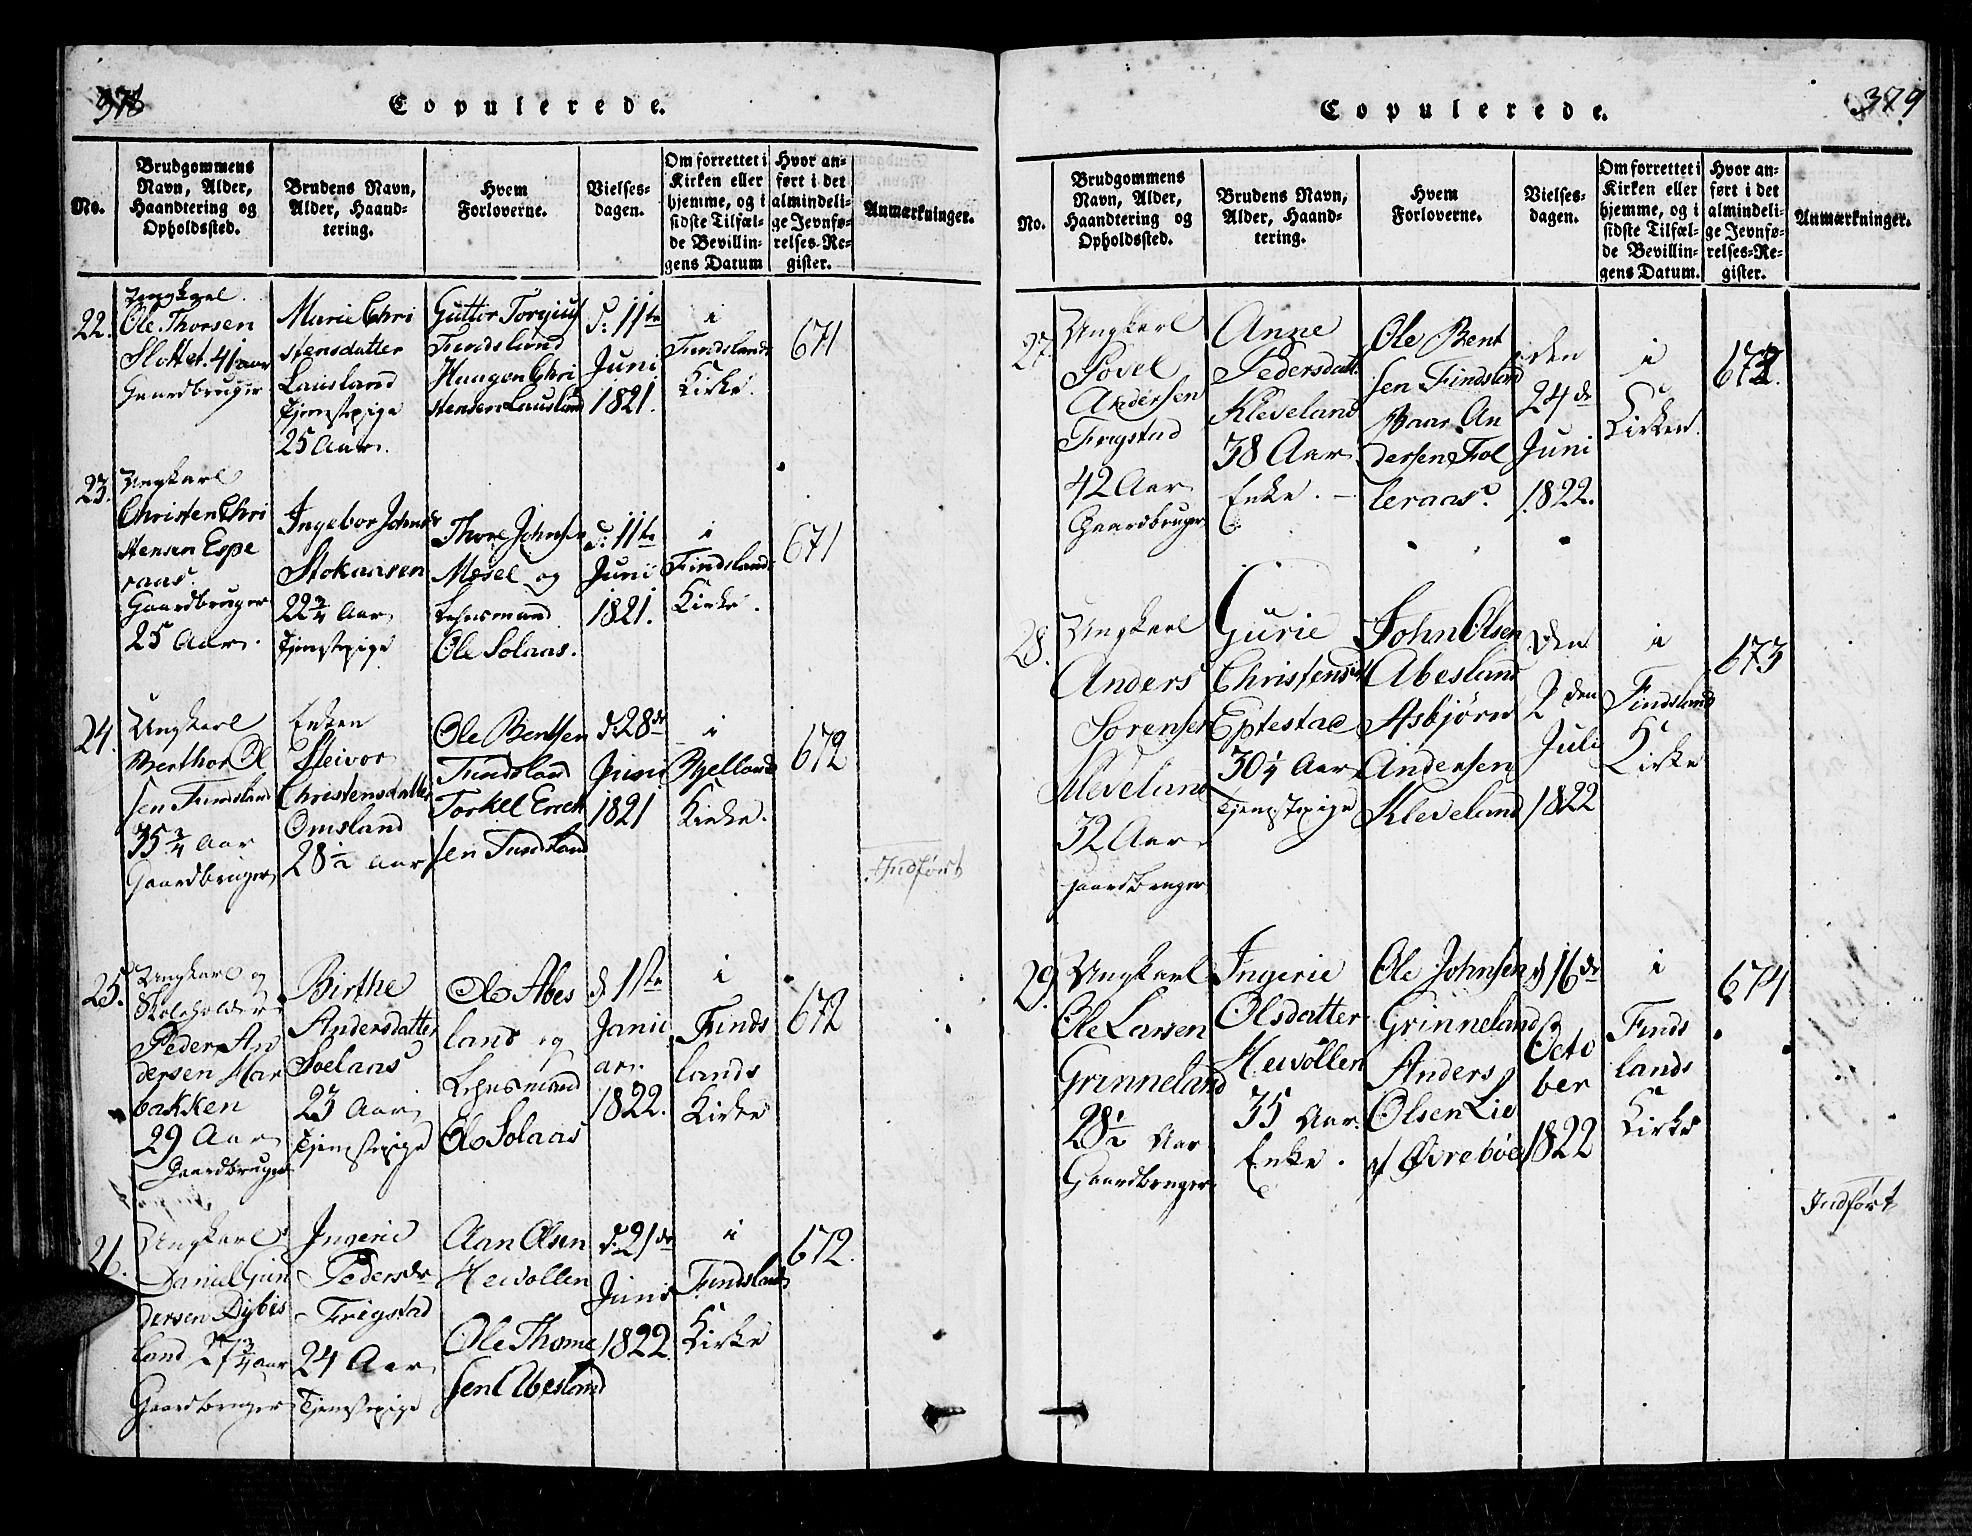 378
Copulerede.
No.
Brudgommens
Navn, Alder,
Haandtering og
Opholdssted.
Brudens Navn,
Alder, Haand-
tering.
Hvem
Forloverne.
Vielses-
dagen.
Om forrettet i
Kirken eller
hjemme, og i
sidste Tilfæl-
de Bevillin-
gens Datum
Hvor an-
ført i det
almindeli-
ge Jevnfø-
relses-Re-
gister.
Anmærkninger.
22.
Ungkarl
Ole Thorsen
Slottet. 41 aar
Gaardbruger
Marie Chri
stensdatter
Lausland
Tjenestepige
25 Aar.
Guttor Torgius
Findsland
Haagen Chri
stensen Lausland
d: 11te
Juni
1821.
i
Findslands
Kirke.
671
23.
Ungkarl
Christen Chri
stensen Espe
raas.
Gaardbruger
25 Aar.
Ingebor Johnsdr
Stokaasen
22 3/4 Aar
Tjenestepige
Thore Johnsen
Mosel og
Lehnsmand
Ole Solaas.
d: 11te
Juni
1821.
i
Findslands
Kirke.
671
24.
Ungkarl
Berthor Ol
sen Findsland
35 3/4 Aar
Gaardbruger
Enken
Sleivor
Christensdatter
Omsland
28 1/2 Aar
Ole Bentsen
Findsland
Torkel Erich
sen Findsland
d. 28de
Juni
1821
i
Bjellands
Kirke.
672
Indført
25.
Ungkarl og
Skoleholder
Peder An
dersen Har
bakken
29 Aar
Gaardbruger
Birthe
Andersdatter
Soelaas
23 Aar
Tjenestepige
Ole Abes
land og
Lehnsmand
Ole Solaas
d 1ste
Janu
ar.
1822.
i
Finds
lands
Kirke
672
26.
Ungkarl
Daniel Gun
dersen Dybes
land 27 3/4 aar
Gaardbruger
Ingerie
Pedersdr
Frigstad
24 Aar
Tjenestepige
Aan Olsen
Heivollen
Ole Thome
sen Abesland
d. 21de
Juni
1822
i
Findslands
Kirke
672.
379
Copulerede.
No.
Brudgommens
Navn, Alder,
Haandtering og
Opholdssted.
Brudens Navn,
Alder, Haand-
tering.
Hvem
Forloverne.
Vielses-
dagen.
Om forrettet i
Kirken eller
hjemme, og i
sidste Tilfæl-
de Bevillin-
gens Datum.
Hvor an-
ført i det
almindeli-
ge Jevnfø-
relses-Re-
gister.
Anmærkninger.
27.
Ungkarl
Povel
Andersen
Frigstad
42 Aar
Gaardbruger
Anne
Pedersdatt.
Kleveland
38 Aar
Enke.
Ole Bent
sen Findsland
Baar An
dersen Fol
leraas.
den
24de
Juni
1822.
i
Kirken.
672.
28.
Ungkarl
Anders
Sorensen
Kleveland
32 Aar
Gaardbruger
Gurie
Christensd
Eptestad
30 1/4 Aar
Tjenestepige
John Olsen
Abesland
Asbjørn
Andersen
Kleveland
Den
2den
Juli
1822
i
Findsland
Kirke
673
29.
Ungkarl
Ole Larsen
Grinneland
28 1/2 Aar
Gaardbruger
Ingerie
Olsdatter
Heivollen
35 Aar.
Enke.
Ole Johnsen
Grinneland
Anders
Olsen Lie
af Øvrebøe
d 16de
Octo
ber
1822
i
Finds
lands
Kirke
674
Indført